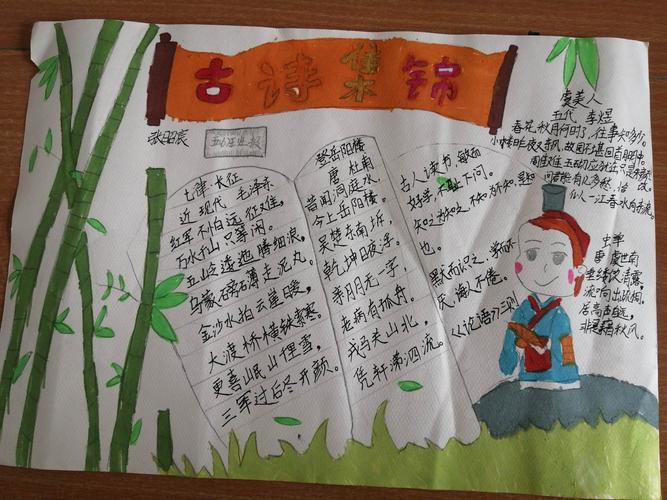 古诗集锦
张昭宸
七律 长征
近现代 毛泽东
红军不怕远征难,
万水千山只等闲。
五岭逶迤腾细浪,
乌蒙磅礴走泥丸。
金沙水拍云崖暖,
大渡桥横铁索寒。
更喜岷山千里雪,
三军过后尽开颜。
登岳阳楼
唐 杜甫
昔闻洞庭水,
今上岳阳楼。
吴楚东南坼,
乾坤日夜浮。
亲朋无一字,
老病有孤舟。
戎马关山北,
凭轩涕泗流。
古人读书,敏而
好学,不耻下问。
知之为知之,不知为不知,是知
也。
默而识之,学而不
厌,诲人不倦。
《论语》三则
虞美人
五代 李煜
春花秋月何时了,往事知多少。
小楼昨夜又东风,故国不堪回首月明中。
问君能有几多愁,恰
似一江春水向东流。
虫单
唐 虞世南
垂緌饮清露,
流响出疏桐。
居高声自远,
非是藉秋风。